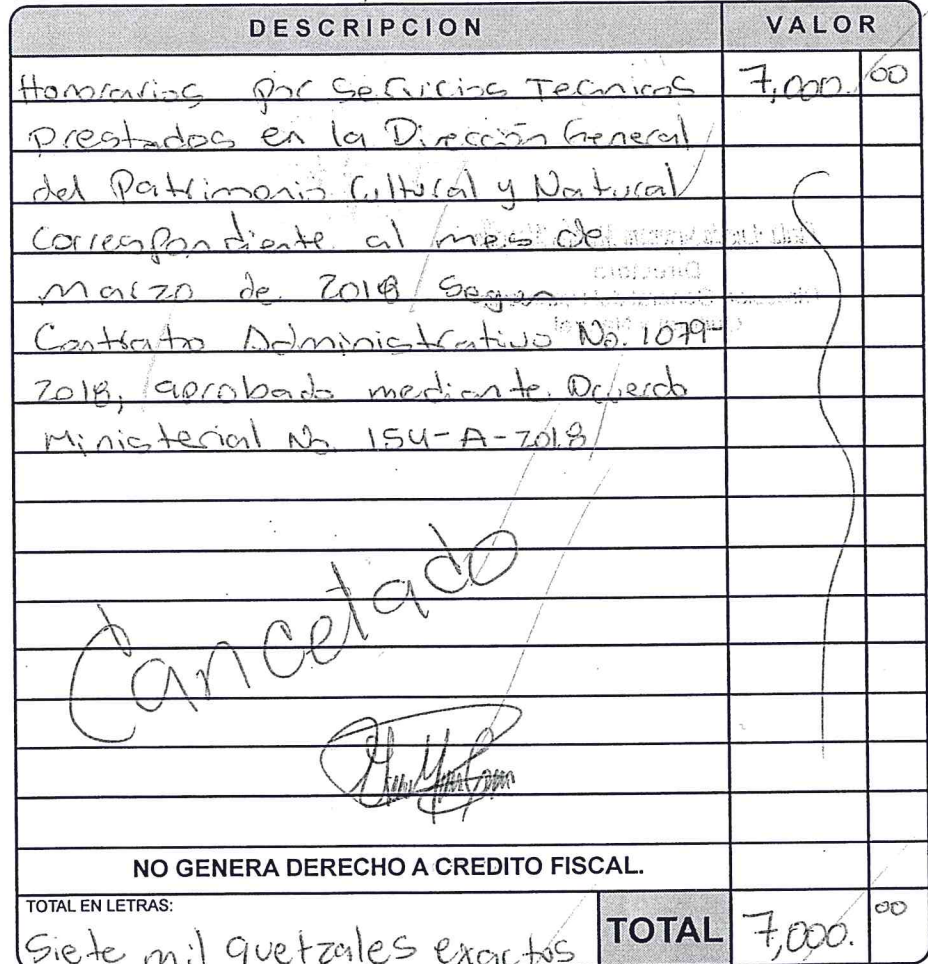 DESCRIPCION VALOR
Honorarios por Servicios Tecnicos 7,000. 00
prestados en la Dirección General
del Patrimonio Cultural y Natural
Correspondiente al mes de
Marzo de 2018 Segun
Contrato Administrativo No. 1079-
2018, aprobado mediante Acuerdo
Ministerial No. 154-A-2018
Cancelado
NO GENERA DERECHO A CREDITO FISCAL.
TOTAL EN LETRAS:
Siete mil quetzales exactos TOTAL 7,000. 00